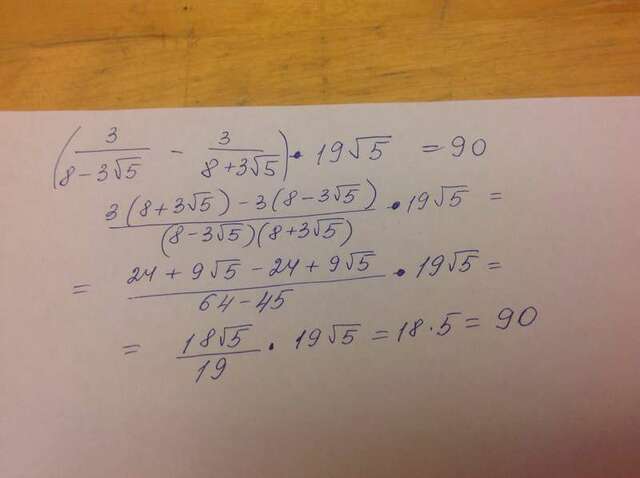 (3/(8-3√5) - 3/(8+3√5)) • 19√5 = 90
(3(8+3√5)-3(8-3√5))/((8-3√5)(8+3√5)) • 19√5 =
= (24+9√5-24+9√5)/(64-45) • 19√5 =
= 18√5/19 • 19√5 = 18·5 = 90